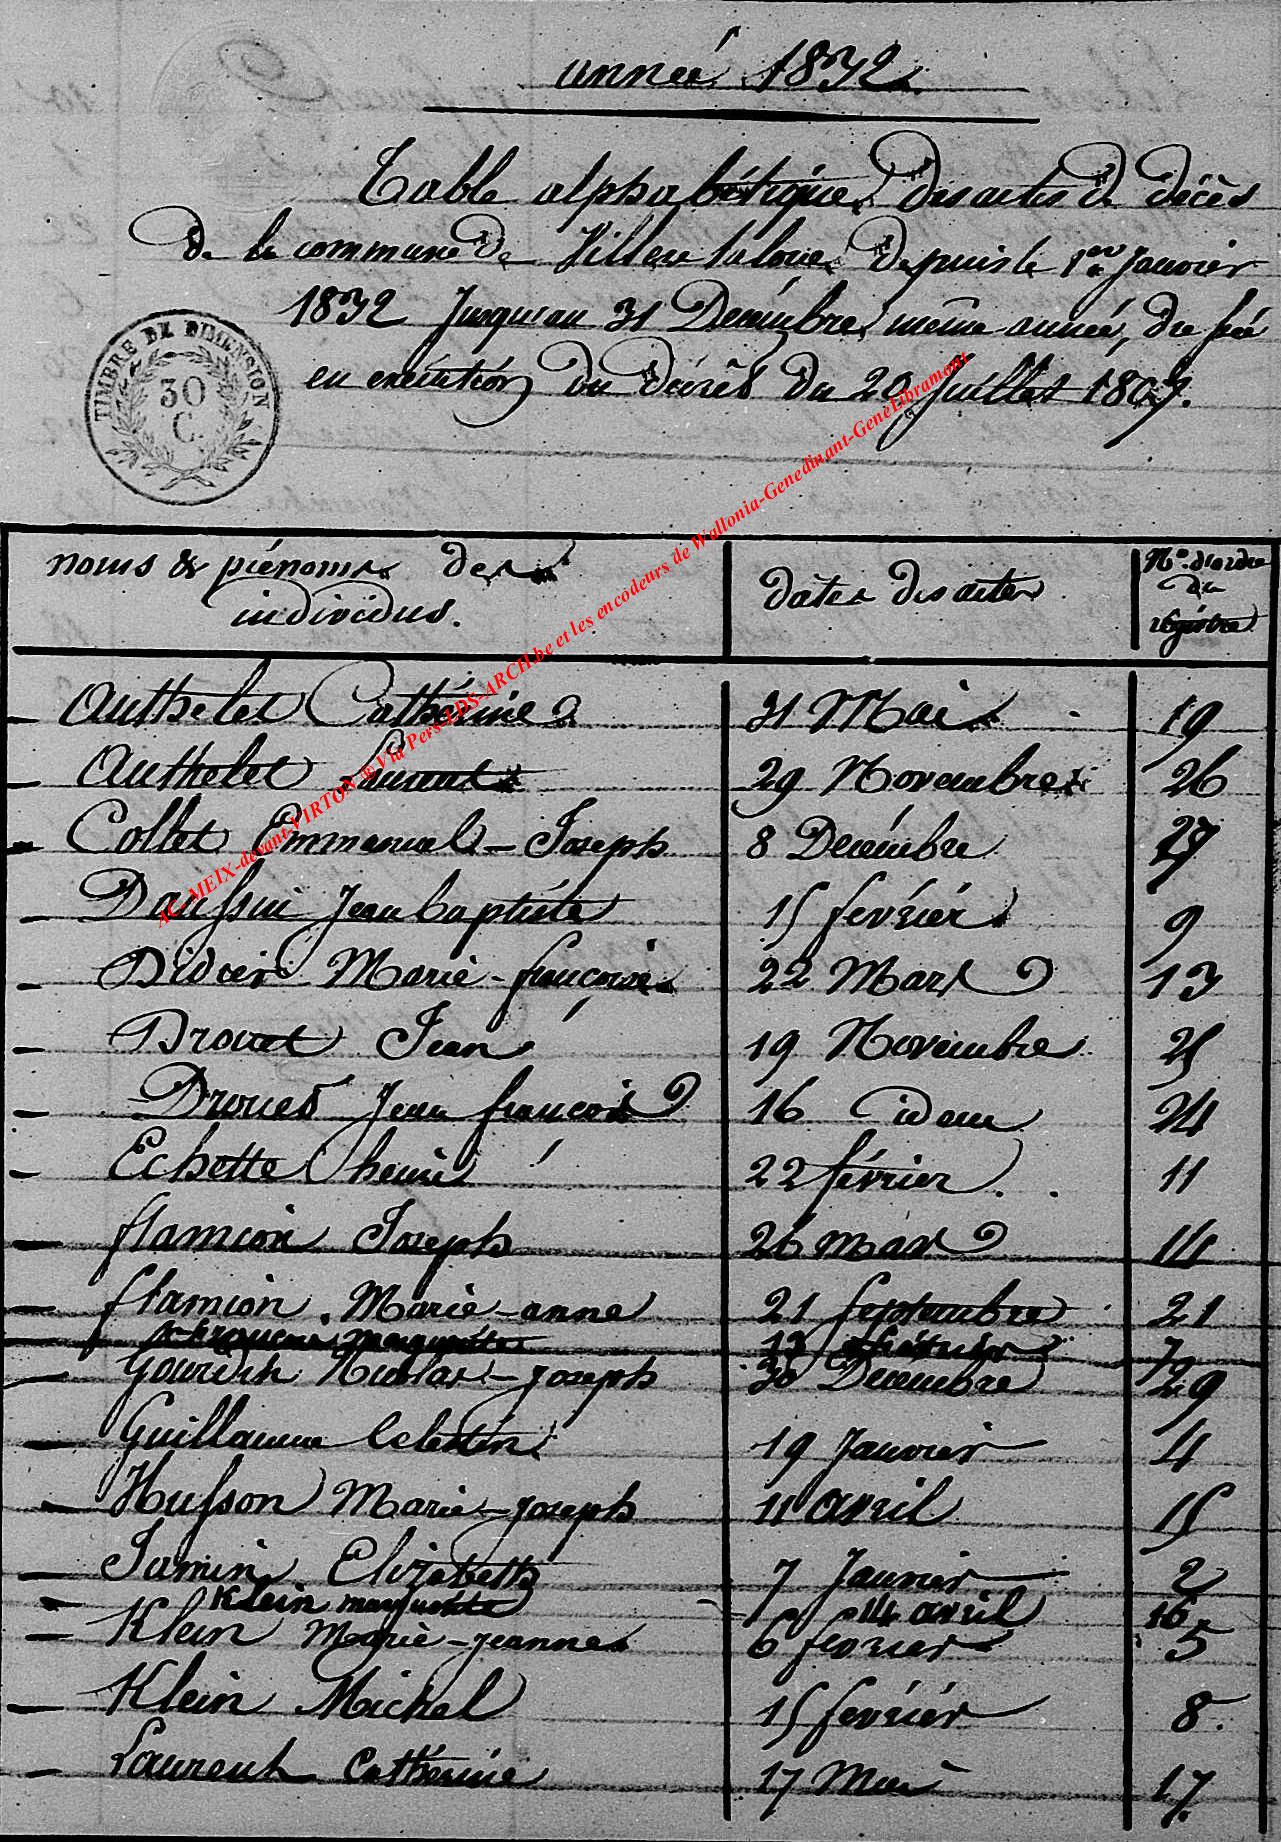 année 1832.
Table alphabétique des actes de décès
de la commune de Villers la loue depuis le 1er Janvier
1832 Jusqu'au 31 Decémbre même année, dressée
en exécution du décrès du 20 Juillet 1807.
TIMBRE DE DIMENSION
30
C.
noms & prénoms des
individus.
dates des actes
No. d'ordre
du
régistre
Authelet Cathérine 31 Mai 19
Authelet Laurent 29 Novembre 26
Collet Emmanuel - Joseph 8 Decémbre 27
Daussin Jean baptiste 15 fevriér 9
Didier Marie - françoise 22 Mars 13
Drouet Jean 19 Novembre 25
Drouet Jean françois 16 idem 24
Echette henri 22 février 11
flamion Joseph 26 Mars 14
flamion Marie - anne 21 septembre 21
françoise marguerite 13 février 7
Gourdin Nicolas - Joseph 30 Decembre 29
Guillaume Celestin 19 Janvier 4
Husson Marie - Joseph 11 avril 15
Jamin Elizabeth 7 Janvier 2
Klein marguerite 14 avril 16
Klein Marie - Jeanne 6 fevrier 5
Klein Michel 15 fevriér 8
Laurent Cathérine 17 Mai 17
AC MEIX-devant-VIRTON ® Via Pers-LDS-ARCH.be et les encodeurs de Wallonia-Genedinant-GeneLibramont